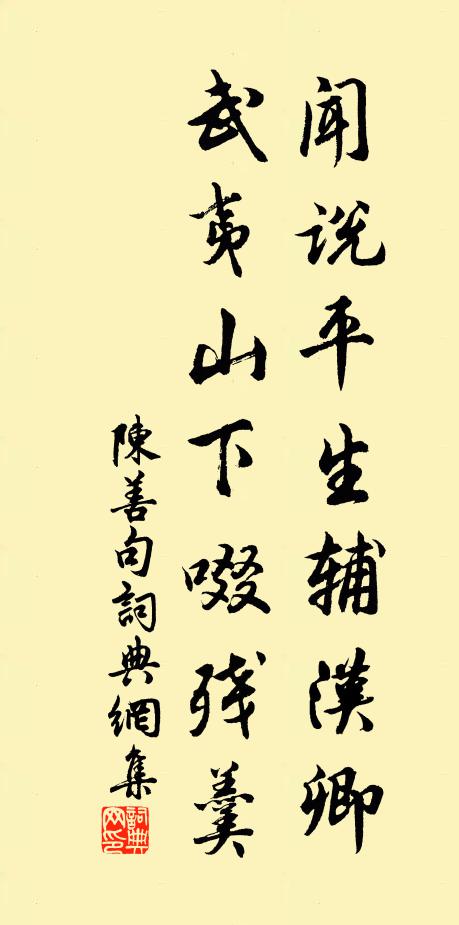 闻说平生辅漢卿
武夷山下啜残羹
陳善句詞典網集
詞典网印